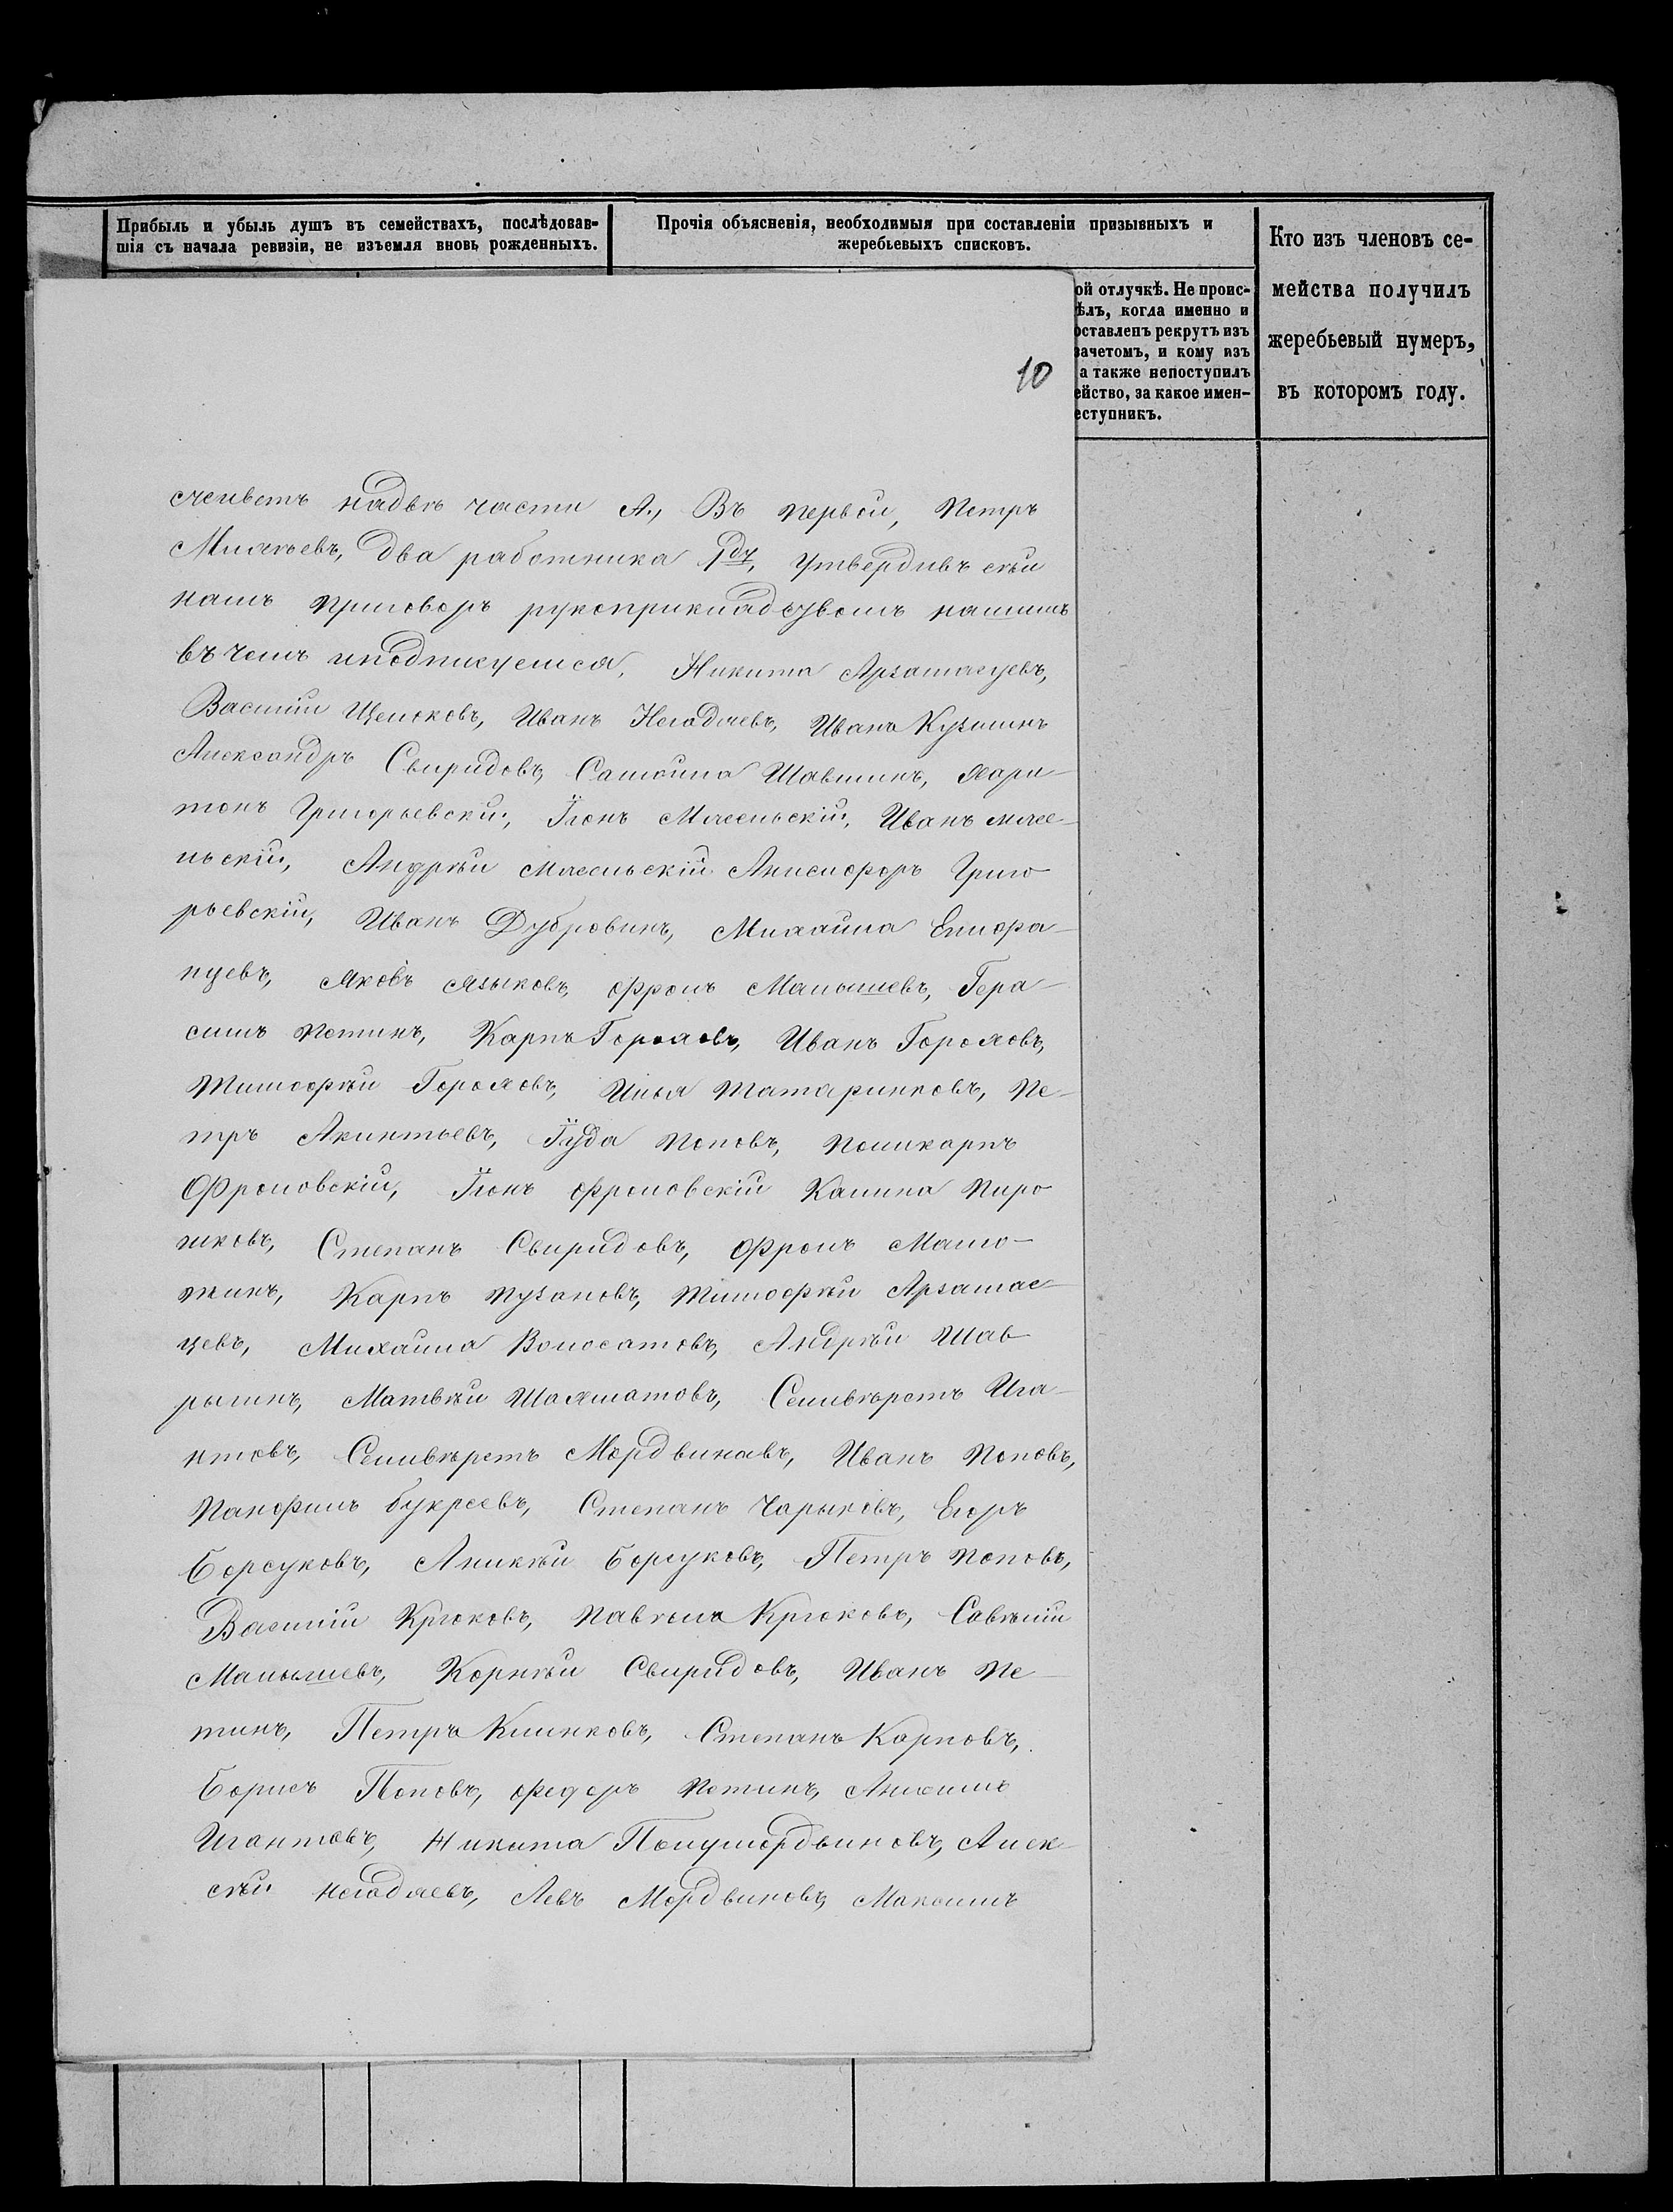 Прибыль и убыль душъ въ семействахъ, послѣдовав-
шія съ начала ревизіи, не изъемля вновь рожденныхъ.
Прочія объясненія, необходимыя при составленіи призывныхъ и
жеребьевыхъ списковъ.
Кто изъ членовъ се-
мейства получилъ
жеребьевый нумеръ,
въ которомъ году.
ой отлучкѣ. Не проис-
ѣлъ, когда именно и
оставленъ рекрутъ изъ
зачетомъ, и кому изъ
а также непоступилъ
ейство, за какое имен-
еступникъ.
10
части А., Въ первой, Петръ
два работника 1дч, Утвердивъ сѣй
нашъ приговоръ рукоприкладсвомъ нашимъ
въ чемъ иподписуемся, Никита Арзамасцевъ,
Василій Щеноковъ, Иванъ Негодяевъ, Иванъ Кузминъ
Александръ Свиридовъ, Самоила Шавшинъ, Хари-
тонъ Григорьевскій, Іонъ Мясельскій, Иванъ мясе-
льскій, Андрѣй мясельскій Анисифоръ Григо-
рьевскій, Иванъ Дубровинъ, Михайла Епифа-
нцевъ, Яковъ Языковъ, Фролъ Малышевъ, Гера-
симъ Петинъ, Карпъ Гороховъ, Иванъ Гороховъ,
Тимофѣй Гороховъ, Илья Татаринковъ, Пе-
тръ Акинтьевъ, Іуда Поповъ, Поликарпъ
Фроловскій, Іонъ Фроловскій Калина Пиро-
жковъ, Степанъ Свиридовъ, Фролъ Мамо-
жинъ, Карпъ Пузановъ, Тимофѣй Арзамас-
цевъ, Михайла Волосатовъ, Андрѣй Шав-
рыгинъ, Матвѣй Шахматовъ, Селивѣрстъ Ига-
нтовъ, Селивѣрстъ Мордвиновъ, Иванъ Поповъ,
Панфилъ Букреевъ, Степанъ Чарыковъ, Егоръ
Борсуковъ, Аникѣй Борсуковъ, Петръ Поповъ,
Василій Крюковъ, Павѣлъ Крюковъ, Савѣлій
Малышевъ, Корнѣй Свиридовъ, Иванъ Пе-
тинъ, Петръ Климковъ, Степанъ Карповъ,
Борисъ Поповъ, Федоръ Петинъ, Анисимъ
Игантовъ, Никита Полумордвиновъ, Алек-
сѣй Негодяевъ, Левъ Мордвиновъ, Максимъ